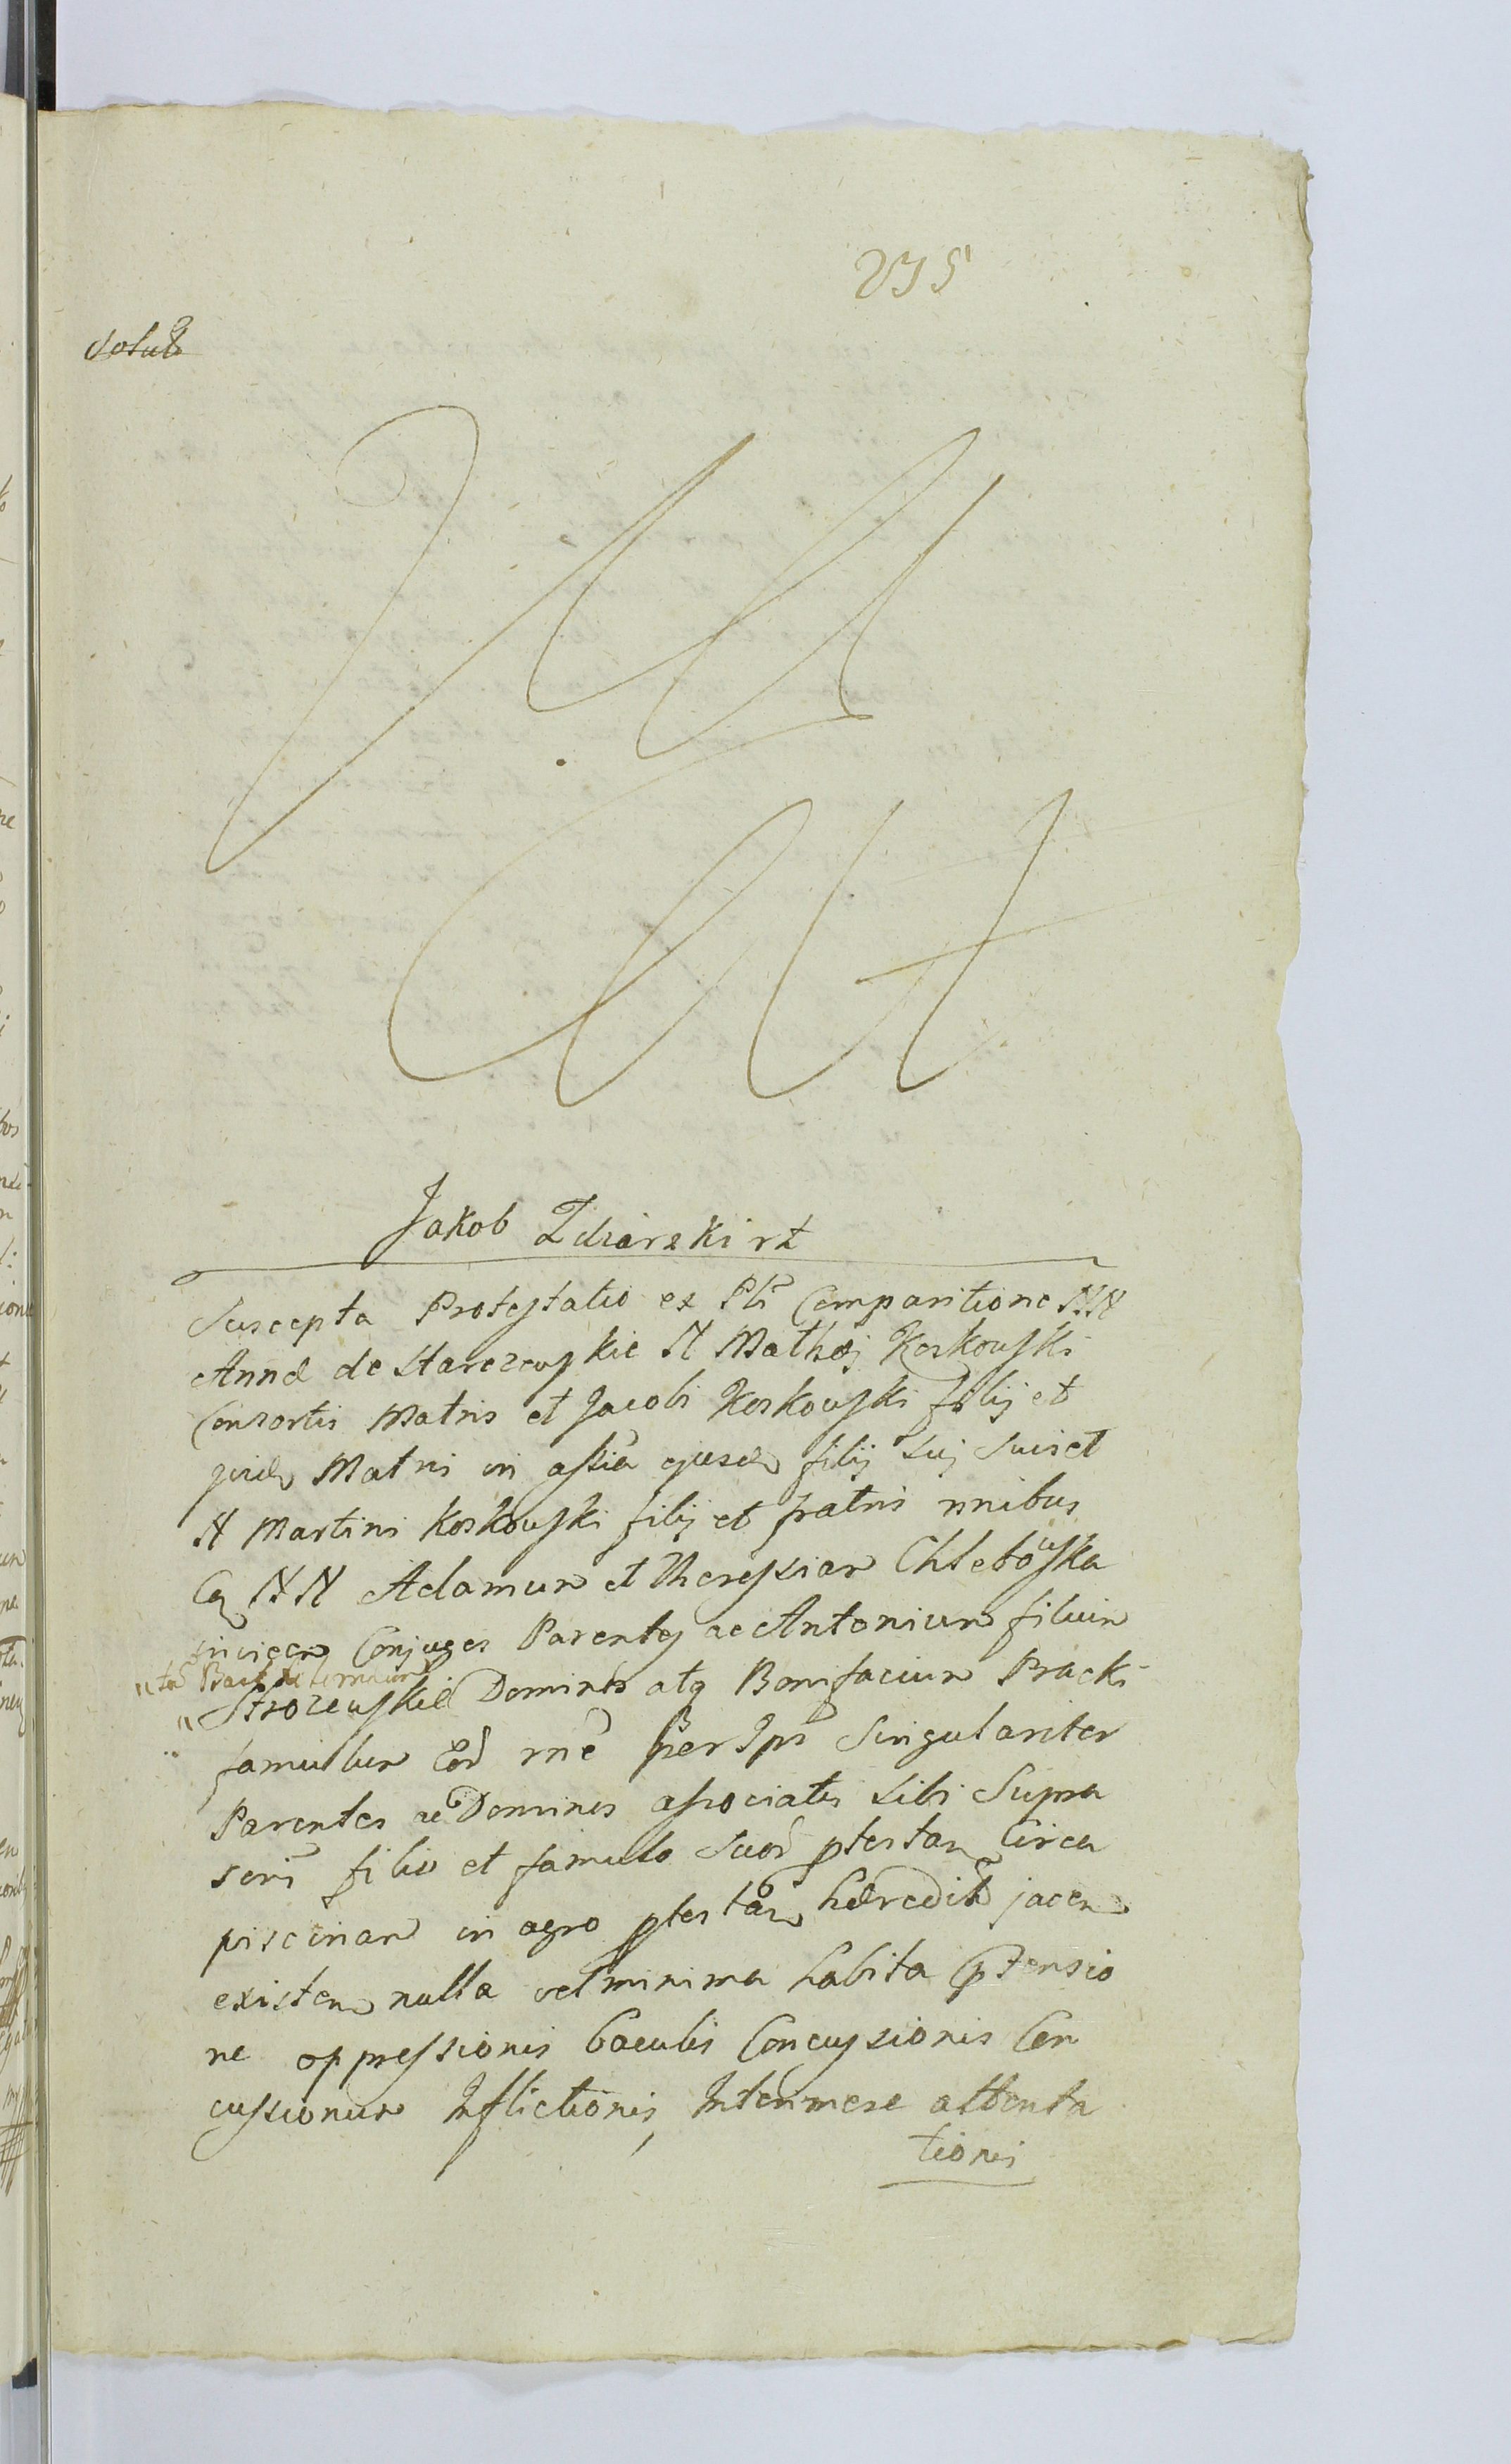 235
Solut
Jakob Zdziarski rt
Suscepta Protestatio ex Pli Comparitione NN
Annæ de Starczewskie N Mathæj Koskowski
Consortis Matris et Jacobi Koskowski filij et
quid Matris in assia ejusd filij Sui Suis et
N Martini Koskowski filij et fratris nnibus
Cq NN Adamum et Theressiam Chlebowska
invicem Conjuges Parentes ac Antonium filium
Strozewskie Dominos atq Bonifacium Pracki
famulum Eod rne per Ips Singulariter
Parentes ac Dominos associatis sibi Supra
scri filio et famulo Suor ptestan Circa
piscinam in agro ptestan hæredit jacen
existen nulla vel minima habita ptensio
ne oppressionis baculis Concussionis Con
cussionum Inflictionis, Intermese attenta
tionis